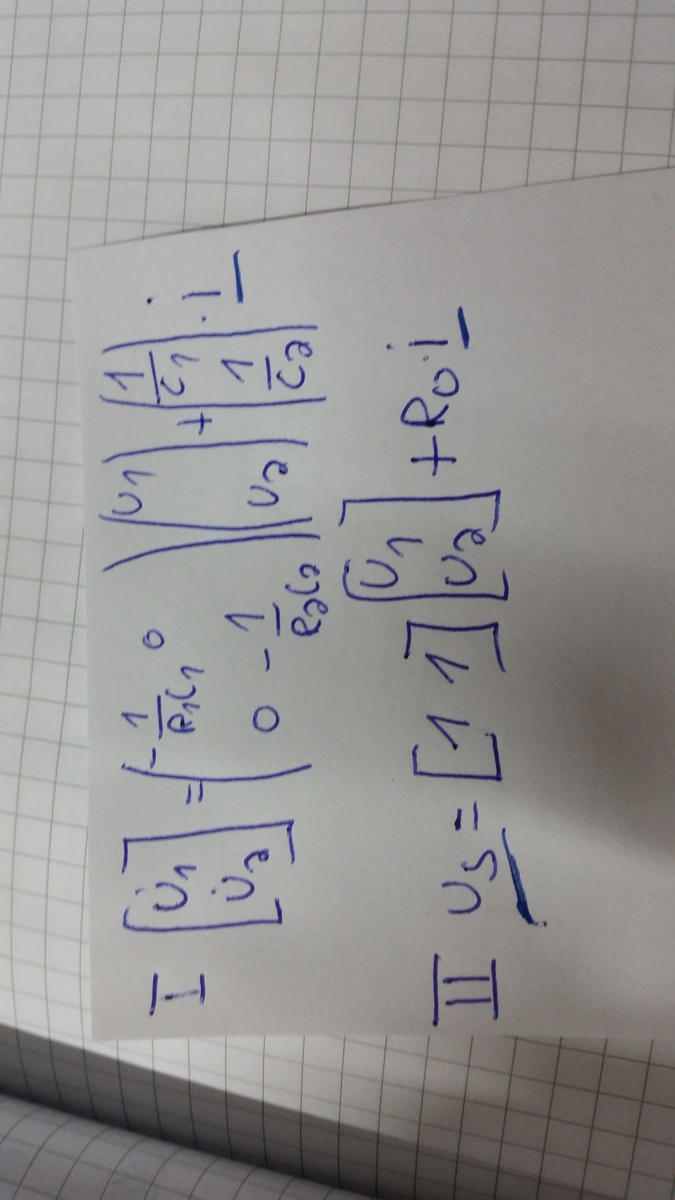 I [U̇1 U̇2] = (-1/R1C1 0 0 -1/R2C2) (U1 U2) + (1/C1 1/C2) · i
II U5 = [1 1] [U1 U2] + R0 · i